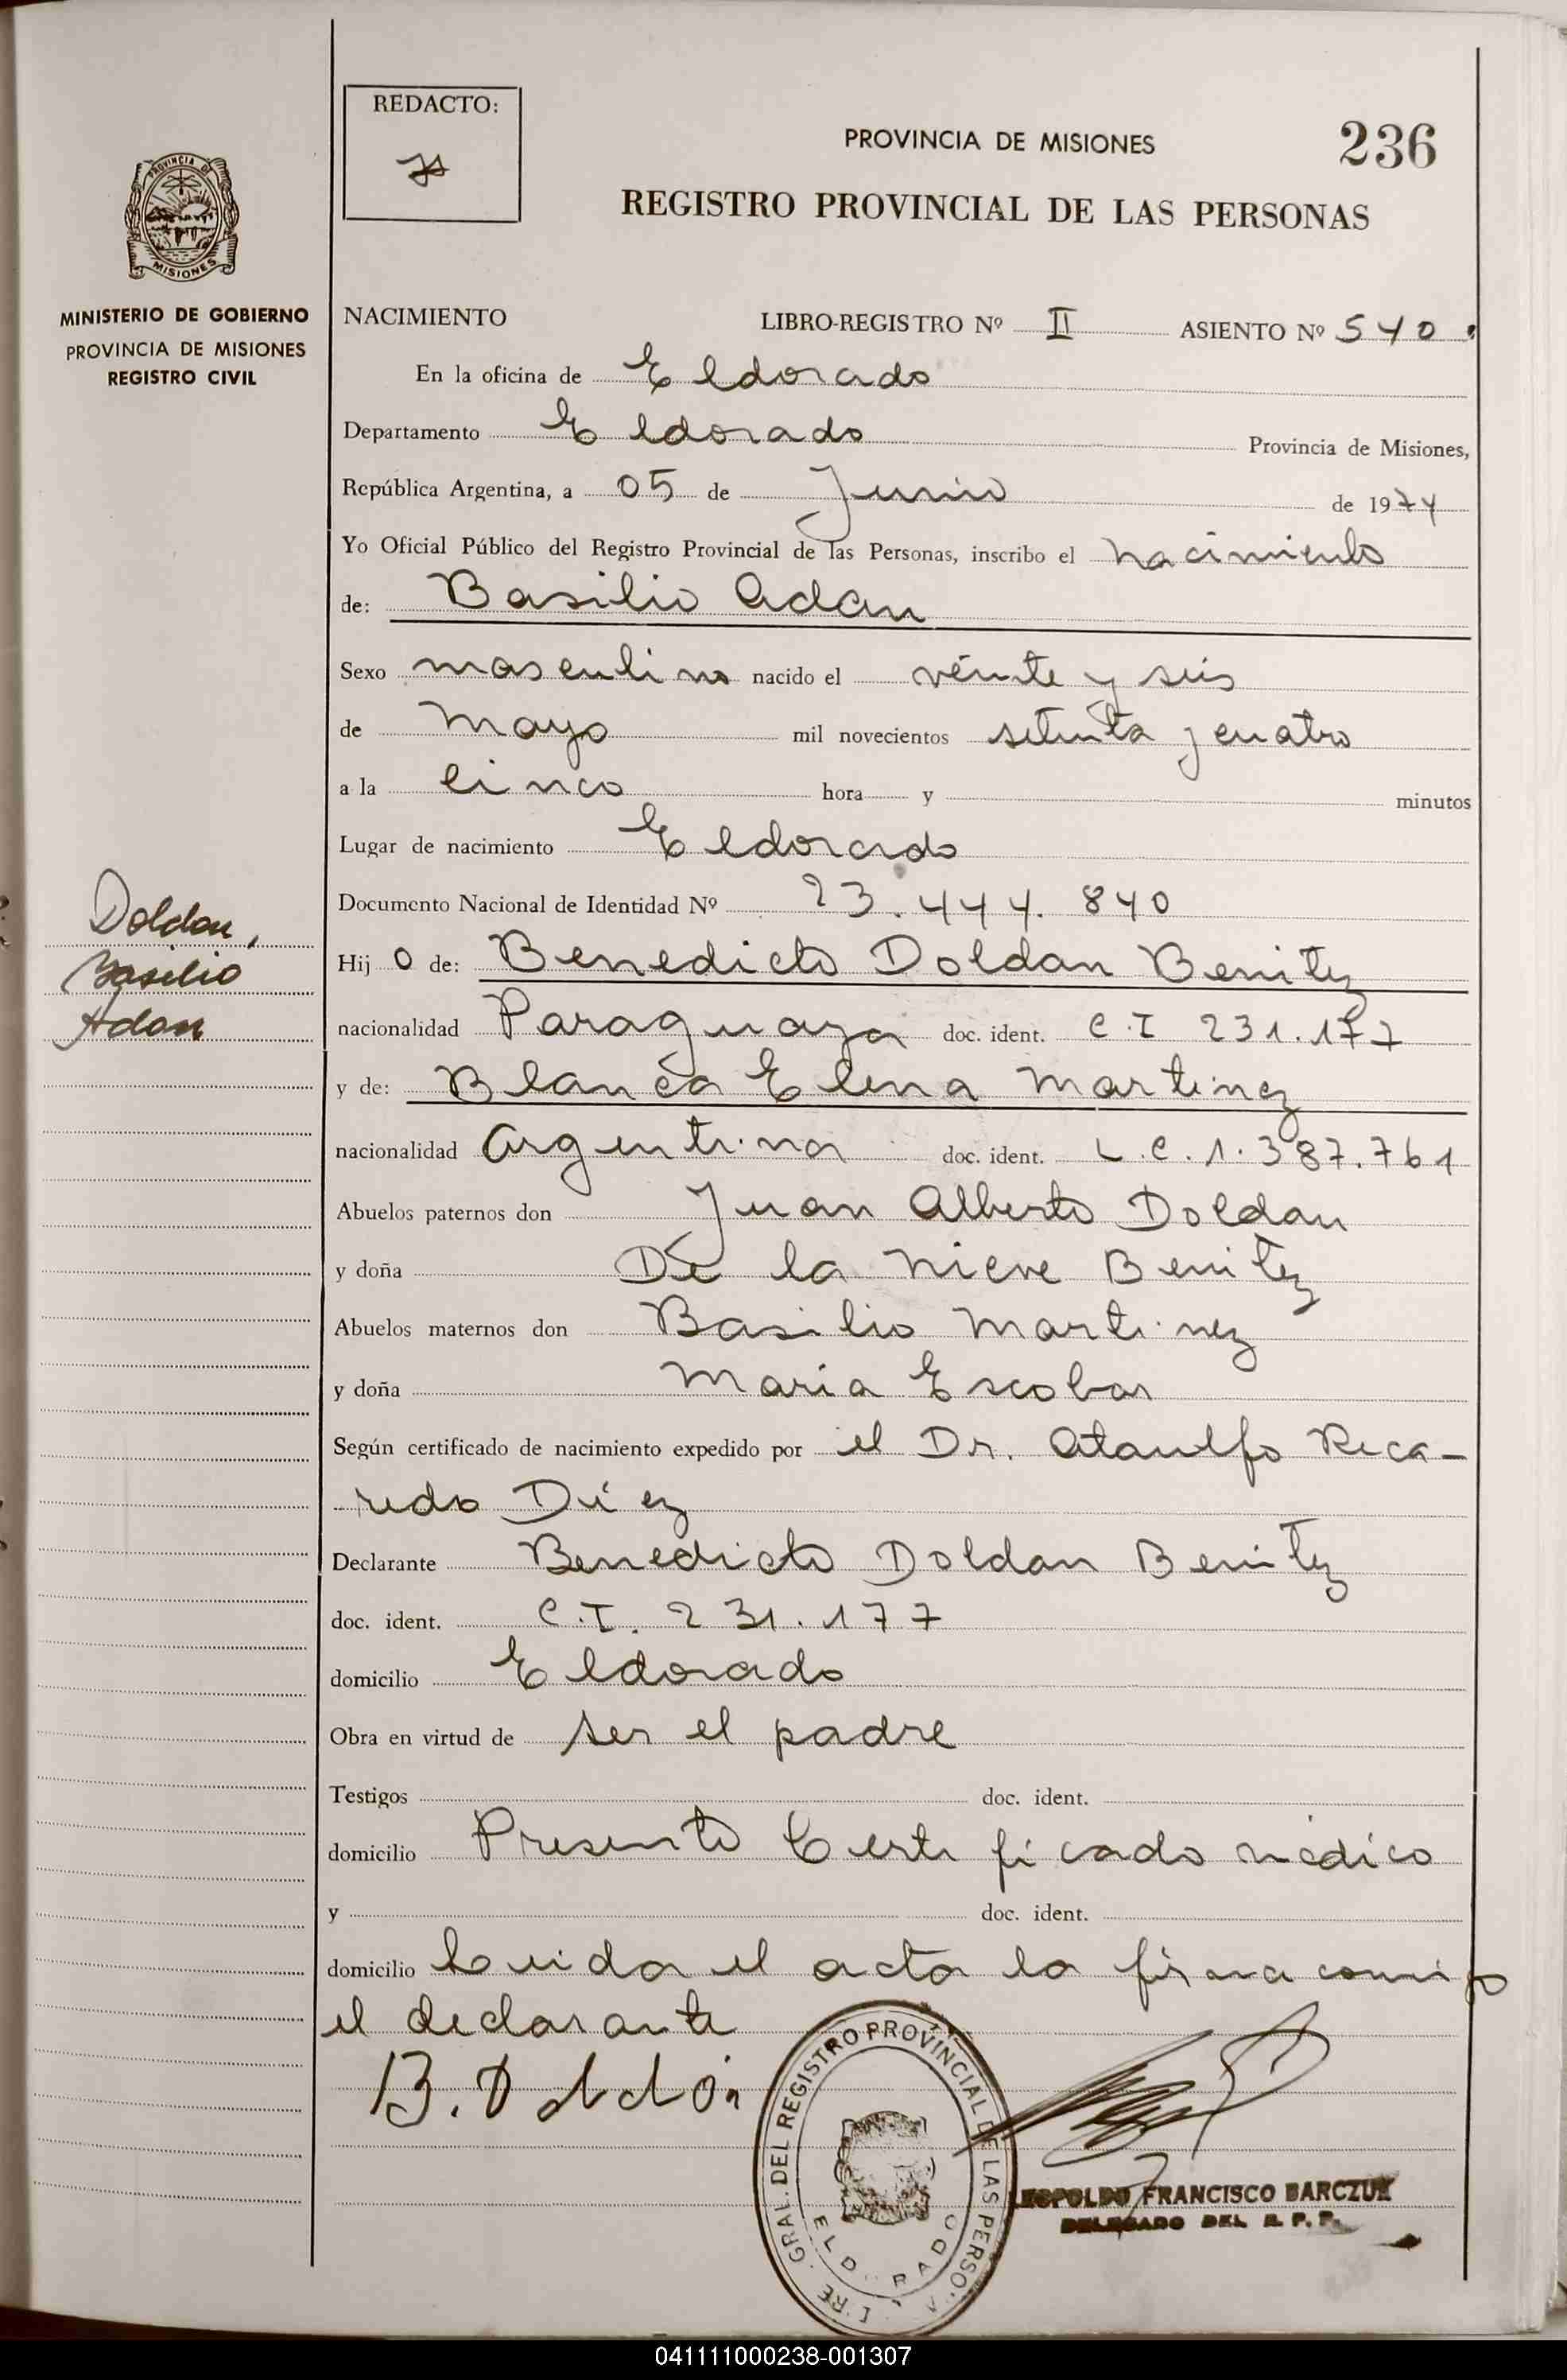 REDACTO:
PROVINCIA DE MISIONES
236
REGISTRO PROVINCIAL DE LAS PERSONAS
PROVINCIA DE
MISIONES
MINISTERIO DE GOBIERNO
PROVINCIA DE MISIONES
REGISTRO CIVIL
NACIMIENTO LIBRO-REGISTRO Nº II ASIENTO Nº 540.
En la oficina de Eldorado
Departamento Eldorado Provincia de Misiones,
República Argentina, a 05 de Junio de 1974
Yo Oficial Público del Registro Provincial de las Personas, inscribo el nacimiento
de: Basilio Adan
Sexo masculino nacido el veinte y seis
de Mayo mil novecientos setenta y cuatro
a la cinco hora y minutos
Lugar de nacimiento Eldorado
Documento Nacional de Identidad Nº 23.444.840
Doldan,
Basilio
Adan
Hijo de: Benedicto Doldan Benitez
nacionalidad Paraguaya doc. ident. C.I 231.177
y de: Blanca Elena Martinez
nacionalidad Argentina doc. ident. L.C. 1.387.761
Abuelos paternos don Juan Alberto Doldan
y doña De la Nieve Benitez
Abuelos maternos don Basilio Martinez
y doña Maria Escobar
Según certificado de nacimiento expedido por el Dr. Ataulfo Reca-
redo Diez
Declarante Benedicto Doldan Benitez
doc. ident. C.I. 231.177
domicilio Eldorado
Obra en virtud de ser el padre
Testigos doc. ident.
domicilio Presento Certificado médico
y doc. ident.
domicilio Leida el acta la firma conmigo
el declarante
B. Doldán
GRAL. DEL REGISTRO PROVINCIAL DE LAS PERSO
ELDORADO
LEOPOLDO FRANCISCO BARCZUK
DELEGADO DEL R. P. P.
041111000238-001307